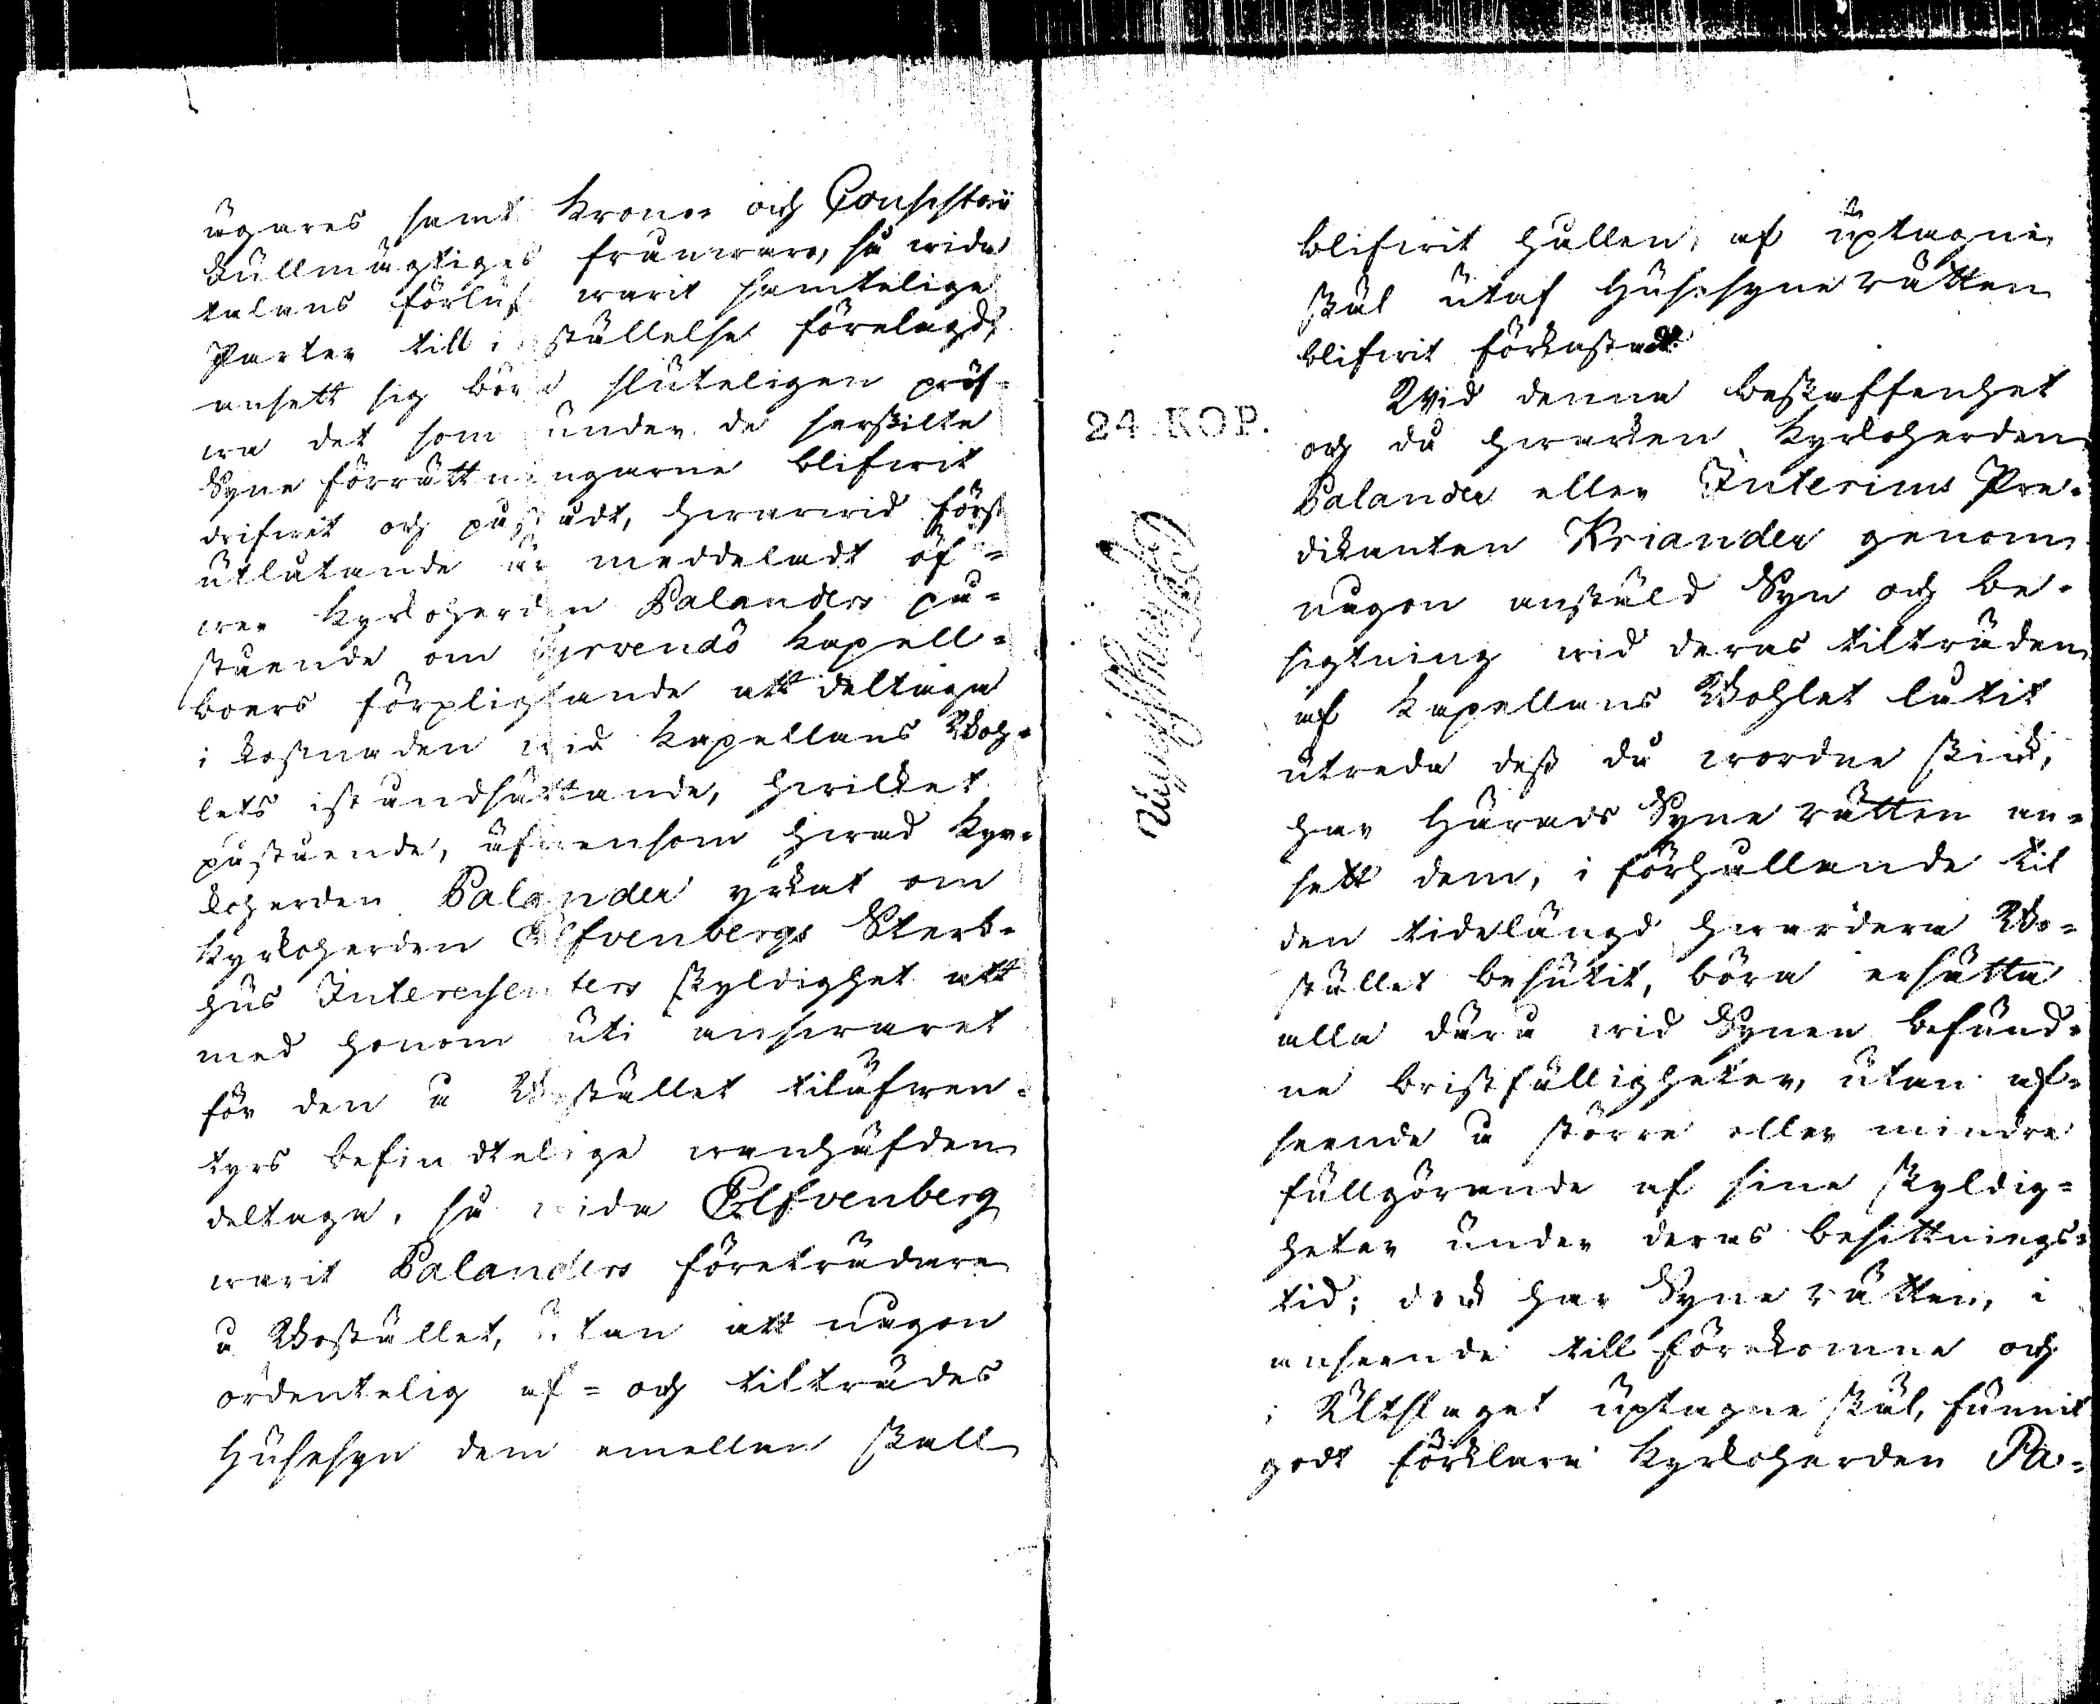 ägares samt Krono och Consistorii
Fullmägtiges frånwaro, så wida
talans förlust warit samtelige
Parter till inställelse förelagd,
ansett sig böra sluteligen pröf-
wa det som under de särskilte
Syne förrättningarne blifwit
drifwit och påstådt, hwarwid först
utlåtande är meddeladt öf-
wer Kyrkoherden Palanders på-
stående om Hirvendö Kapell-
boers förpligtande att deltaga
i kostnaden wid Kapellans Bohl-
lets iståndsättande, hwilket
påstående, äfwensom hwad Kyr-
koherden Palander yrkat om
Kyrkoherden Elfvenbergs Sterb-
hus Interessenters skyldighet att
med honom uti answaret
för den å Bostället tiläfwen-
tyrs befindtelige wanhäfden
deltaga, så wida Elfvenberg
warit Palanders företrädare
å Bostället, utan att någon
ordentelig af- och tilträdes
Husesyn dem emellan skall
blifwit hållen, af uptagne
skäl utaf Husesyne rätten
blifwit förkastadt.
Wid denna beskaffenhet
24 KOP.
och då hwarken Kyrkoherden
Palander eller Interims Pre-
dikanten Kriander genom
någon anstäld Syn och be-
sigtning wid deras tilträden
af Kapellans Bohlet låtit
utreda dess då wordne skick,
har Härads Syne rätten an-
sett dem, i förhållande til
den tidelängd hwardera Bo-
stället besutit, böra ersätta
alla därå wid Synen befund-
ne bristfälligheter, utan af-
seende å större eller mindre
fullgörande af sine skyldig-
heter under deras besittnings-
tid; dock har Syne rätten, i
anseende till förekomne och
i Utslaget uptagne skäl, funnit
godt förklara Kyrkoherden Pa-